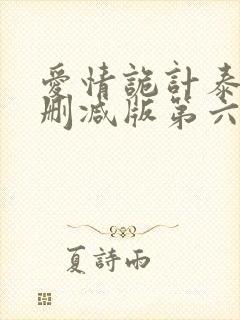 愛情詭計泰
刪減版第六
夏詩雨